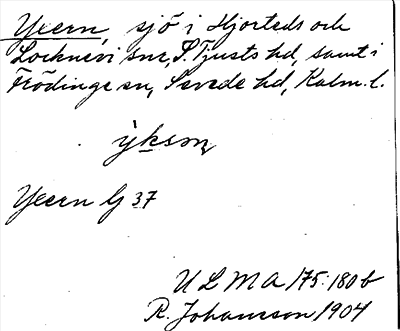 Yxern, sjö i Hjorteds och
Locknevi snr, S. Tjusts hd, samt i
Frödinge sn, Sevede hd, Kalm. l.
Yxern G 37
U L M A 175:180 b
R. Johansson 1904